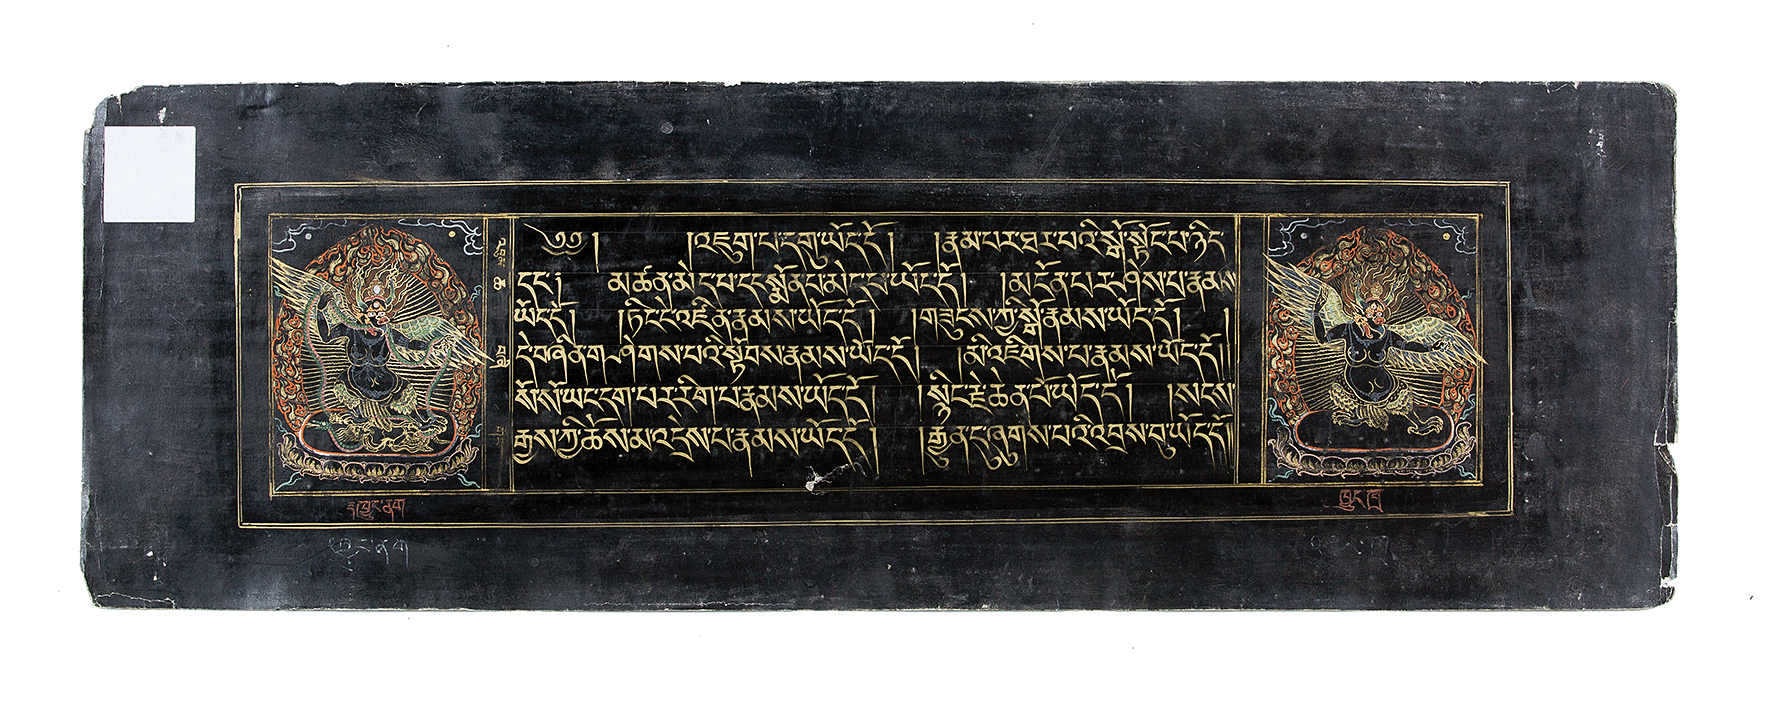 ༄༅། །འཇུག་པ་དགུ་ཡོད་དོ། །རྣམ་པར་ཐར་པའི་སྒོ་སྟོང་པ་ཉིད་
དང་། མཚན་མེད་པ་དང་སྨོན་པ་མེད་པ་ཡོད་དོ། །མངོན་པར་ཤེས་པ་རྣམས་
ཡོད་དོ། །ཏིང་ངེ་འཛིན་རྣམས་ཡོད་དོ། །གཟུངས་ཀྱི་སྒོ་རྣམས་ཡོད་དོ། །
དེ་བཞིན་གཤེགས་པའི་སྟོབས་རྣམས་ཡོད་དོ། །མི་འཇིགས་པ་རྣམས་ཡོད་དོ།།
སོ་སོ་ཡང་དག་པར་རིག་པ་རྣམས་ཡོད་དོ། །སྙིང་རྗེ་ཆེན་པོ་ཡོད་དོ། །སངས་
རྒྱས་ཀྱི་ཆོས་མ་འདྲེས་པ་རྣམས་ཡོད་དོ། །རྒྱུན་དུ་ཞུགས་པའི་འབྲས་བུ་ཡོད་དོ།།